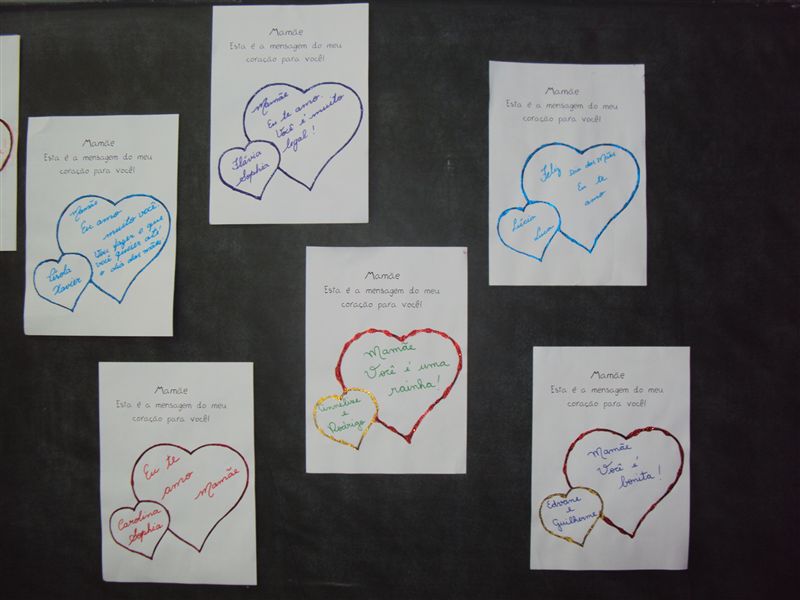 Mamãe
Esta é a mensagem do meu
coração para você!
Mamãe
Eu te amo.
Você é muito
legal!
Flávia
Sophia
Mamãe
Esta é a mensagem do meu
coração para você!
Feliz Dia das Mães
Eu te
amo
Lúcio
Luca
Mamãe
Esta é a mensagem do meu
coração para você!
Mamãe
Eu amo
muito você
Vou fazer o que
você quiser até
o dia das mães
Xavier
Mamãe
Esta é a mensagem do meu
coração para você!
Mamãe
Você é uma
rainha!
Annelise
e
Rodrigo
Mamãe
Esta é a mensagem do meu
coração para você!
Eu te
amo
Mamãe
Carolina
Sophia
Mamãe
Esta é a mensagem do meu
coração para você!
Mamãe
Você é
bonita!
Edvane
e
Guilherme